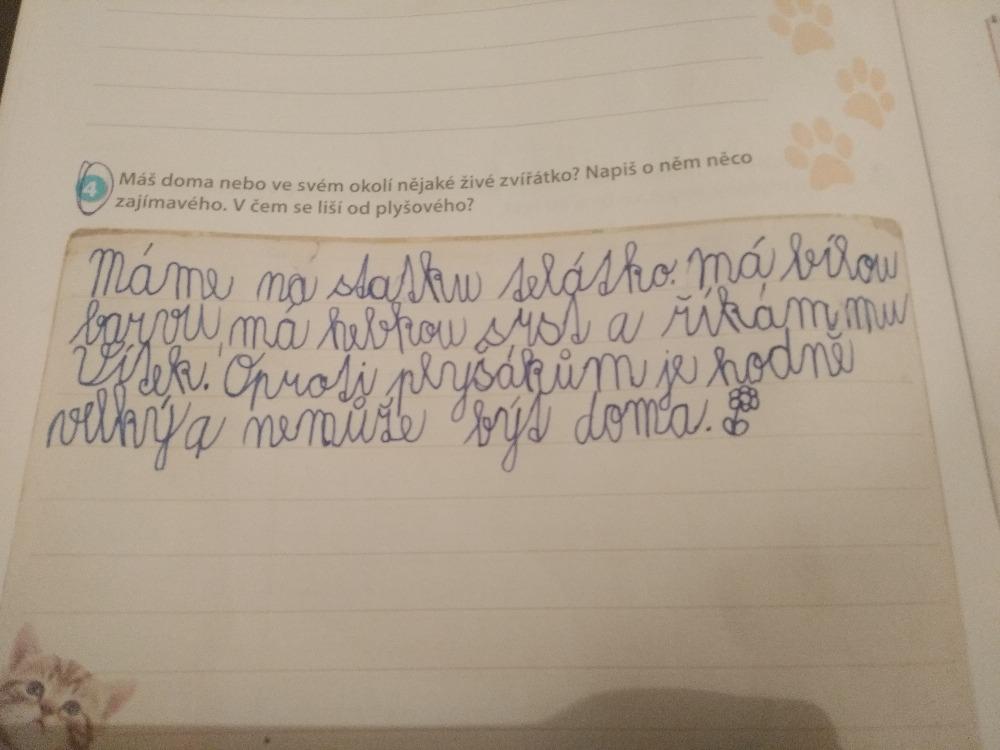 4 Máš doma nebo ve svém okolí nějaké živé zvířátko? Napiš o něm něco
zajímavého. V čem se liší od plyšového?
Máme na statku telátko. má bílou
barvu, má hebkou srst a říkám mu
Vítek. Oproti plyšákům je hodně
velký a nemůže být doma.